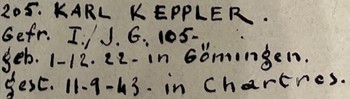 205. KARL KEPPLER.
Gefr. I./J.G. 105-
geb. 1-12. 22- in Gömingen.
gest. 11-9-43- in Chartres.